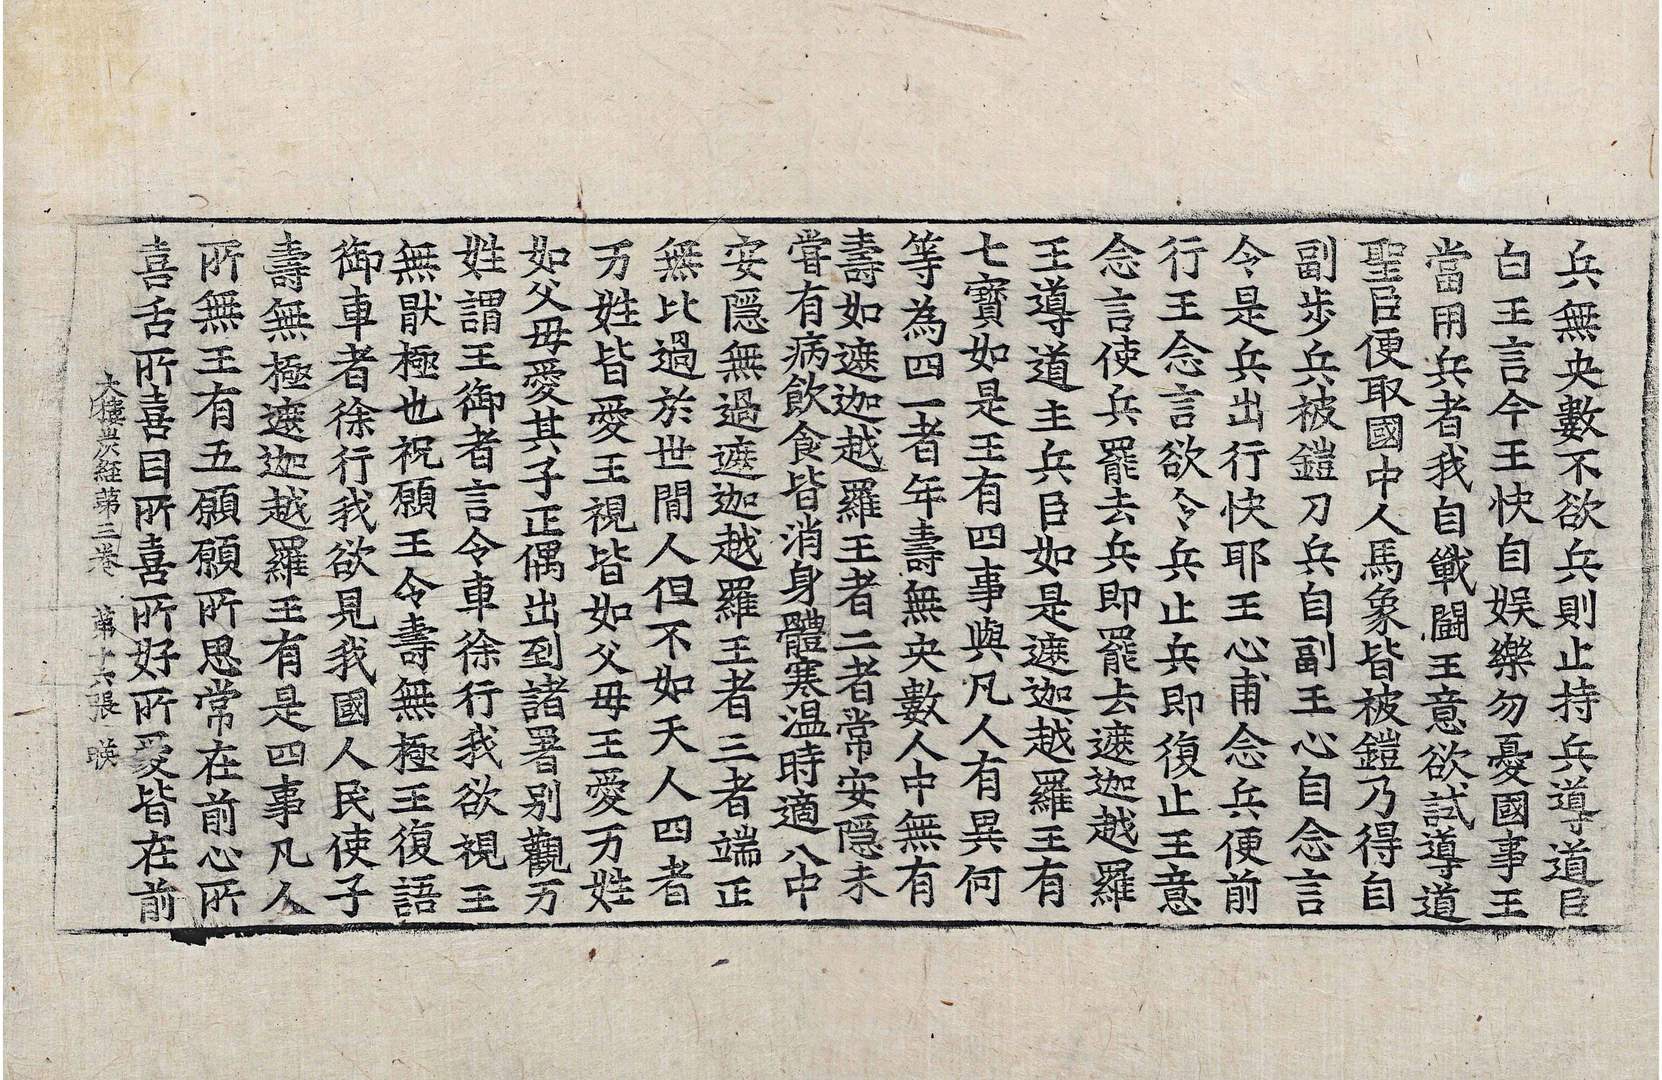 兵無央數不欲兵則止持兵導道臣
白王言今王快自娛樂勿憂國事王
當用兵者我自戰鬪王意欲試導道
聖臣便取國中人馬象皆被鎧乃得自
副步兵被鎧刀兵自副王心自念言
令是兵出行快耶王心甫念兵便前
行王念言欲令兵止兵即復止王意
念言使兵罷去兵即罷去遮迦越羅
王導道主兵臣如是遮迦越羅王有
七寶如是王有四事與凡人有異何
等為四一者年壽無央數人中無有
壽如遮迦越羅王者二者常安隱未
甞有病飲食皆消身體寒温時適人中
安隱無過遮迦越羅王者三者端正
無比過於世間人但不如天人四者
万姓皆愛王視皆如父母王愛万姓
如父母愛其子正偶出到諸署別觀万
姓謂王御者言令車徐行我欲視王
無猒極也祝願王令壽無極王復語
御車者徐行我欲見我國人民使子
壽無極遮迦越羅王有是四事凡人
所無王有五願願所思常在前心所
喜舌所喜目所喜所好所愛皆在前
大樓炭経第三卷 第十六張 暎